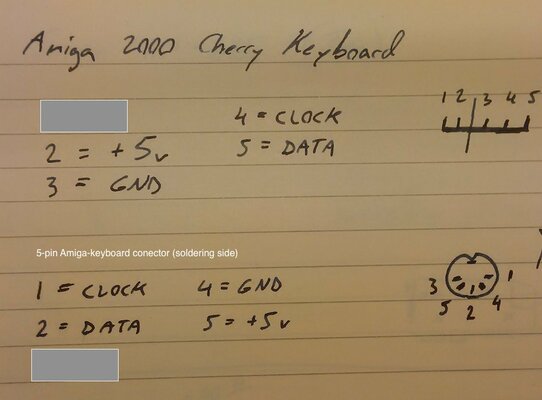 Amiga 2000 Cherry Keyboard
4 = CLOCK
2 = +5v
5 = DATA
3 = GND
1 2 3 4 5
5-pin Amiga-keyboard conector (soldering side)
1 = CLOCK
4 = GND
2 = DATA
5 = +5v
3 5 2 4 1